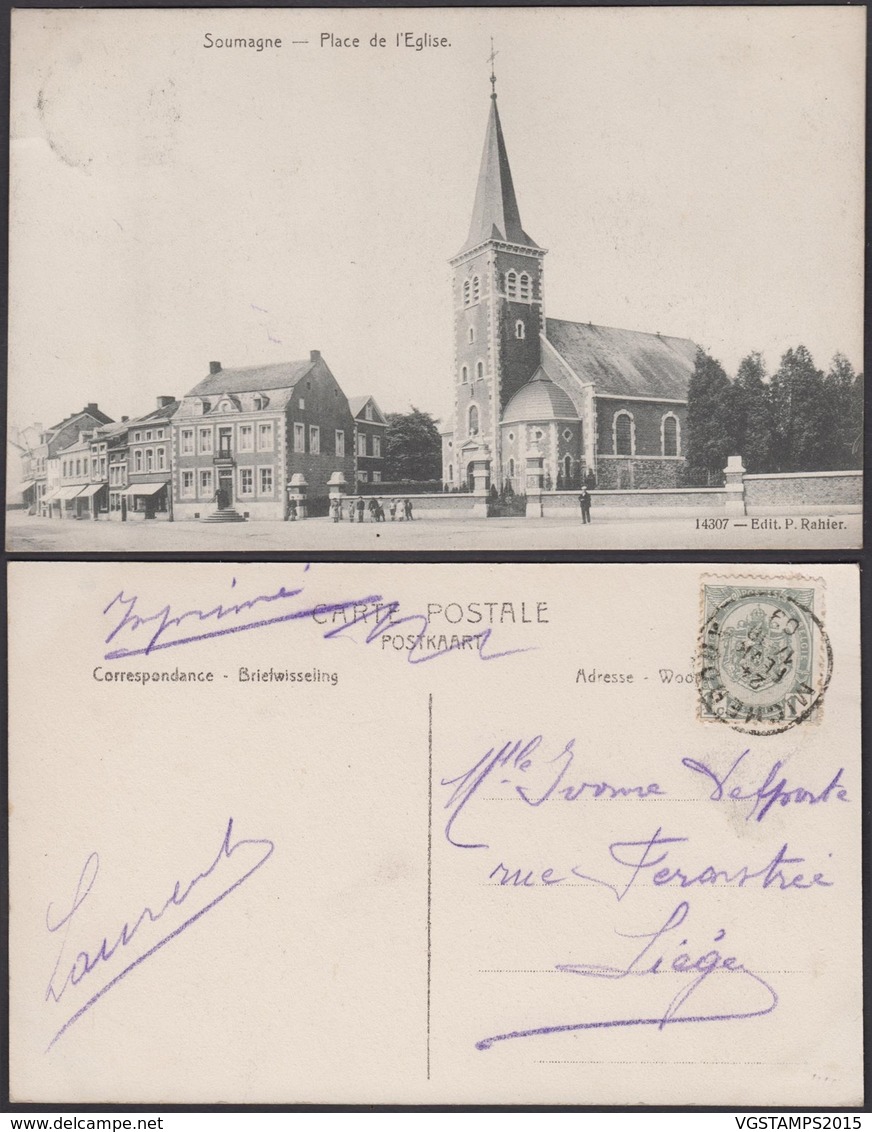 Soumagne — Place de l'Eglise.
14307 — Edit. P. Rahier.
Imprimé
CARTE POSTALE
POSTKAART
Correspondance - Briefwisseling
Adresse - Woo
MICHEROUX
24
FEVR
09
Mlle Yvonne Delporte
rue Feronstrée
Liége
Laurent
VGSTAMPS2015